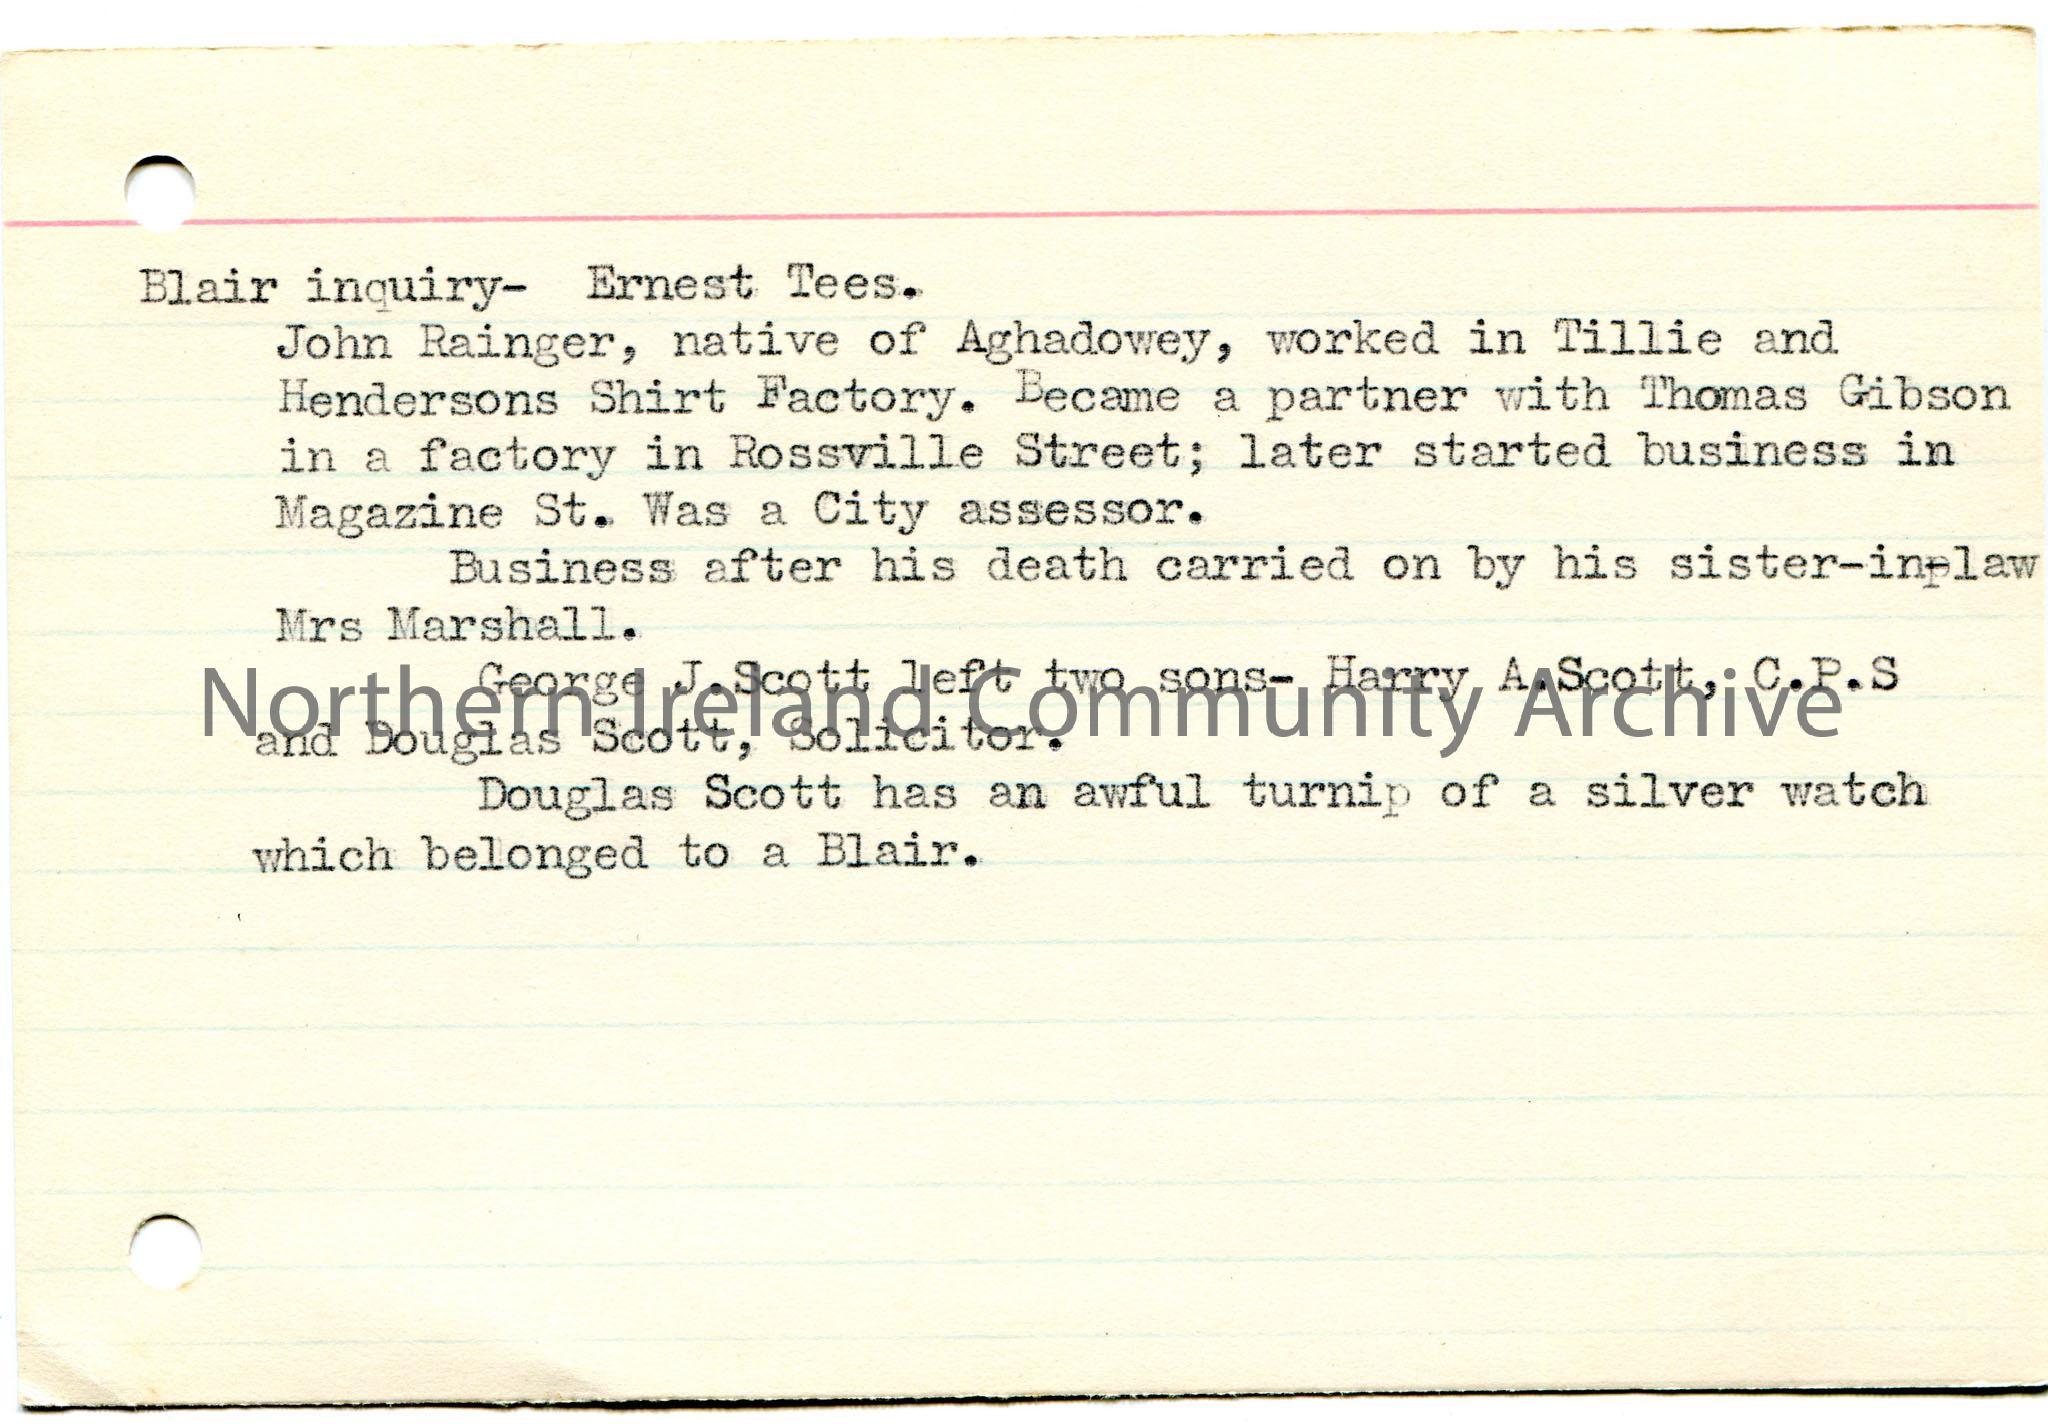 Blair inquiry- Ernest Tees.
John Rainger, native of Aghadowey, worked in Tillie and
Hendersons Shirt Factory. Became a partner with Thomas Gibson
in a factory in Rossville Street; later started business in
Magazine St. Was a City assessor.
Business after his death carried on by his sister-in-law
Mrs Marshall.
George J.Scott left two sons- Harry A.Scott, C.P.S
Northern Ireland Community Archive
and Douglas Scott, Solicitor.
Douglas Scott has an awful turnip of a silver watch
which belonged to a Blair.